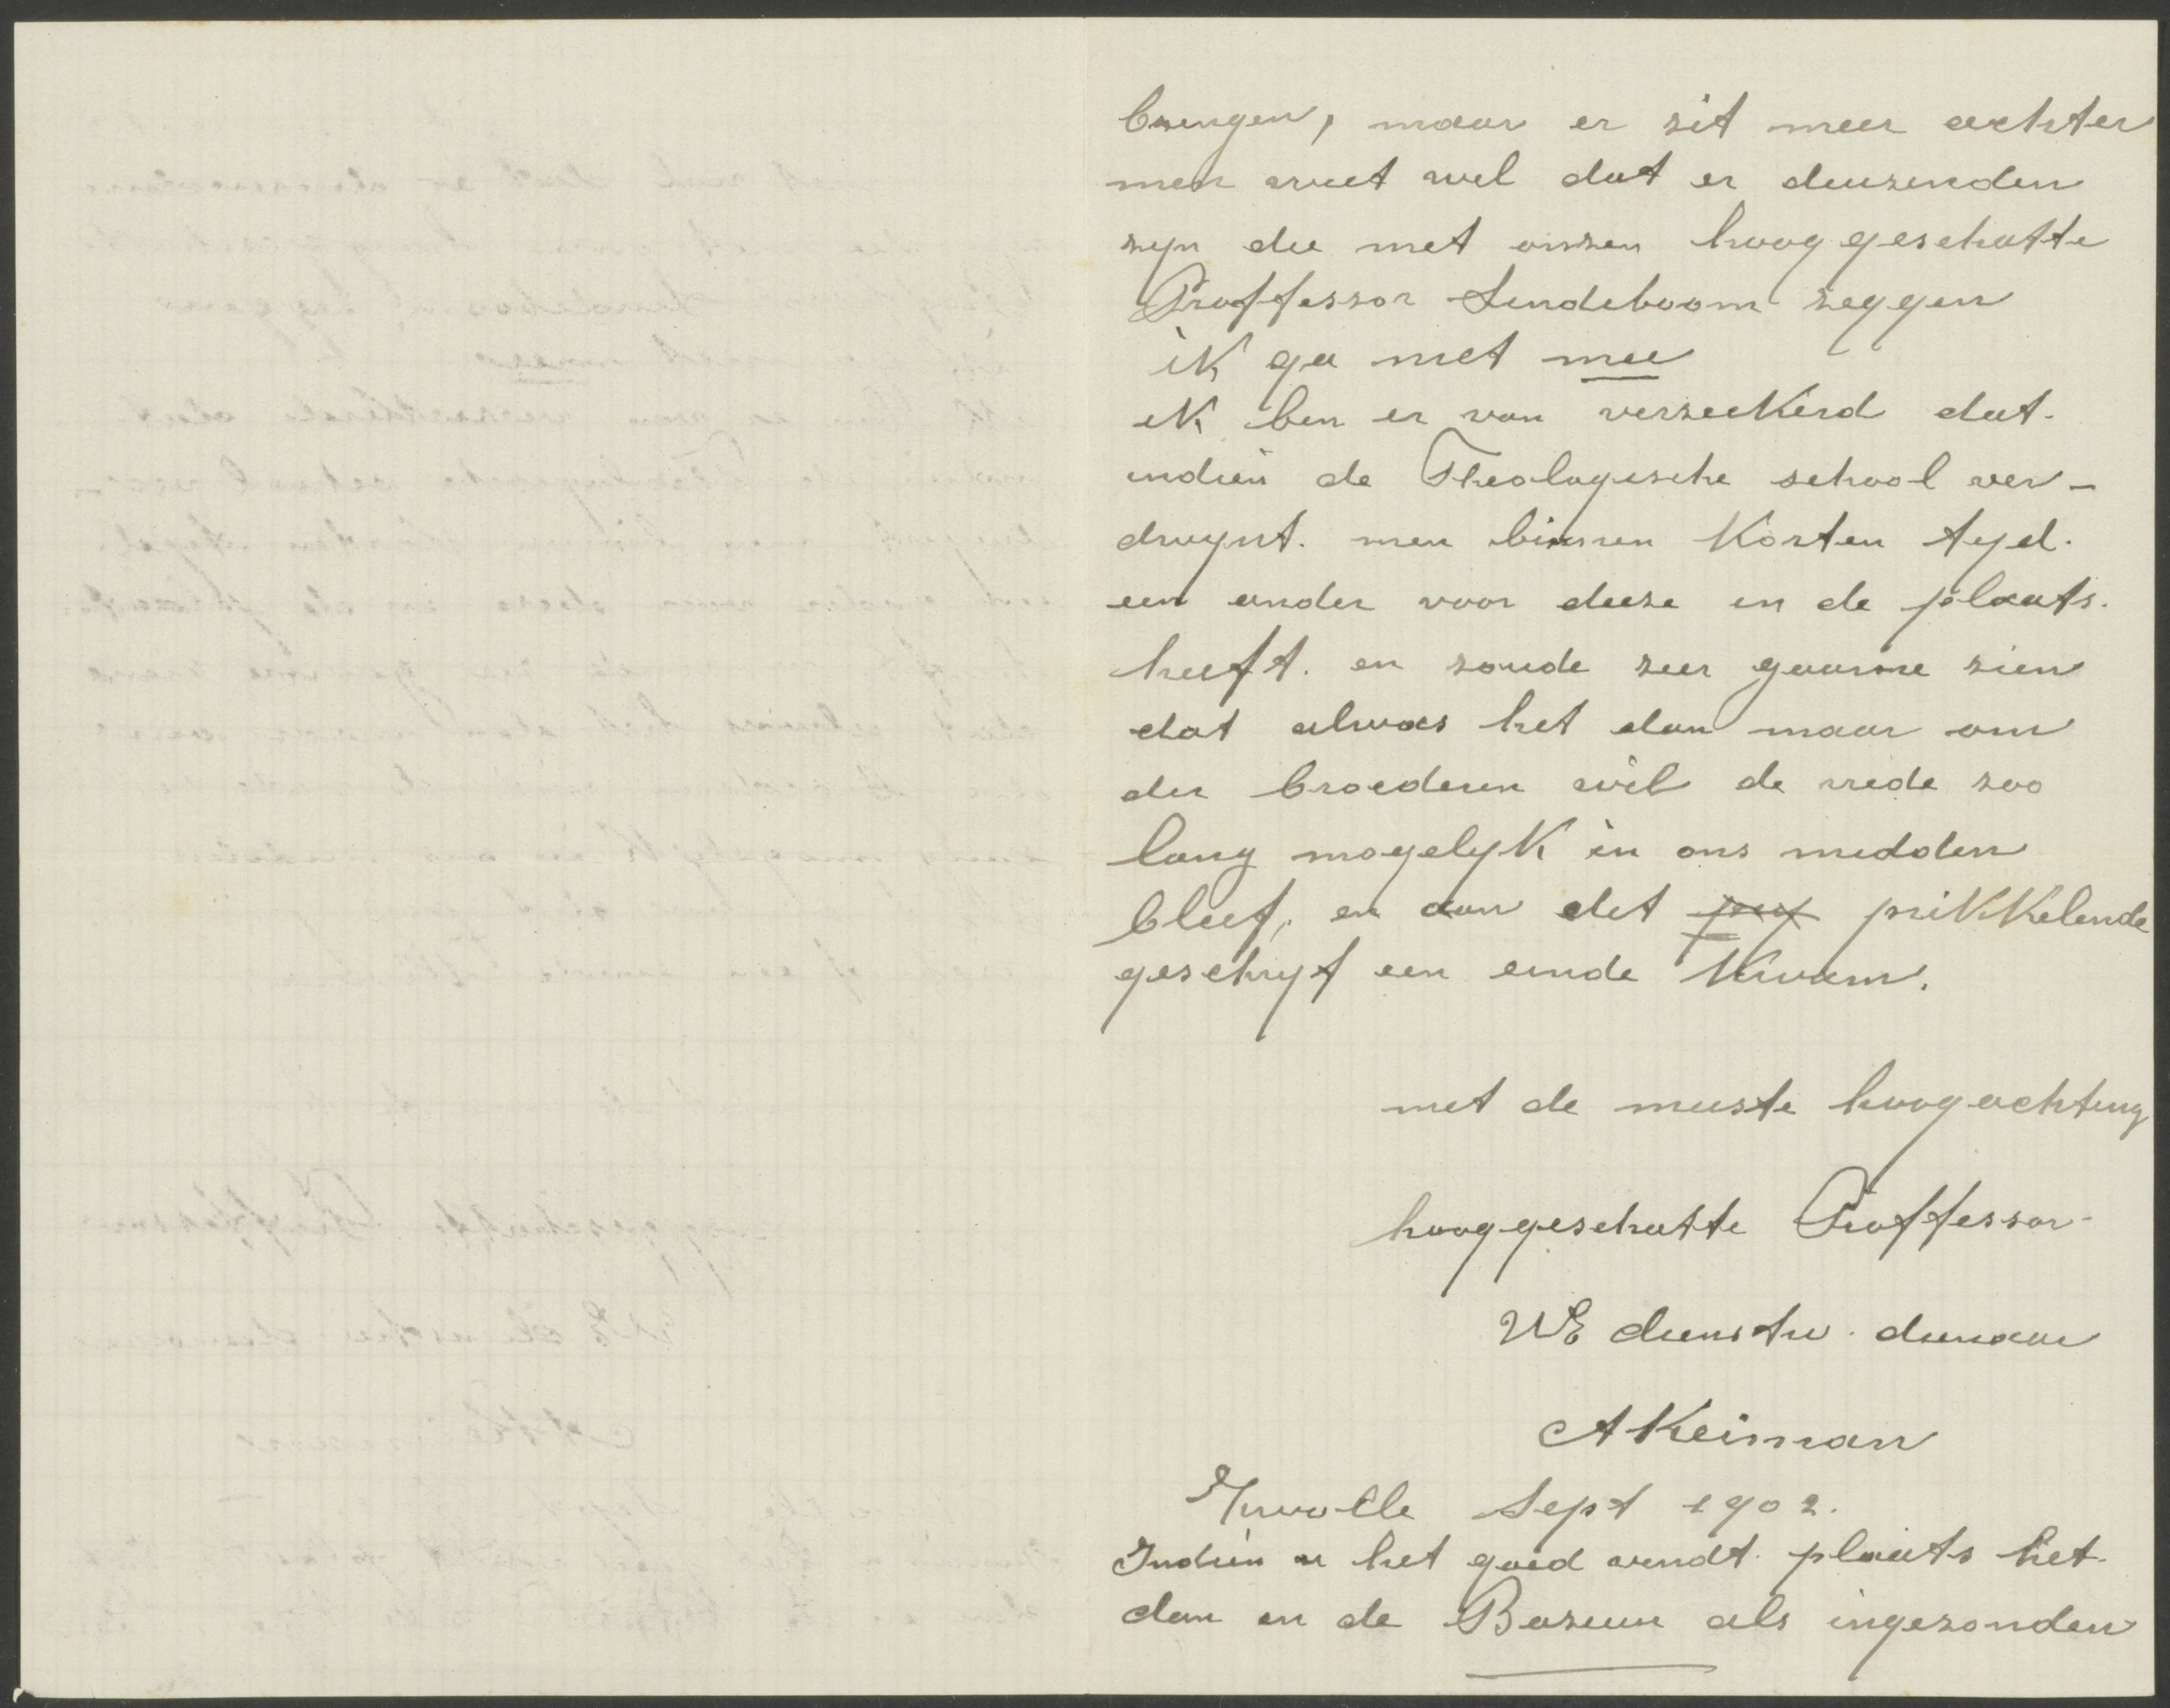 brengen, maar er zit meer achter
men weet wel dat er duizenden
zyn die met onzen hooggeschatte
Proffessor Lindeboom zeggen
ik ga niet mee
ik ben er van verzeekerd dat.
indien de Theologische school ver-
dwynt. men binnen korten tyd.
een ander voor deeze in de plaats.
heeft. en zoude zeer gaarne zien
dat alwas het dan maar om
der broederen wil de vrede zoo
lang mogelyk in ons midden
bleef, en aan dit prikkelende
geschryf een einde kwam.
met de meeste hoogachting
hooggeschatte Proffessor
UE dienstw. dienaar
A Keiman
Zwolle Sept 1902.
Indien u het goed vindt plaats het.
dan in de Bazuin als ingezonden